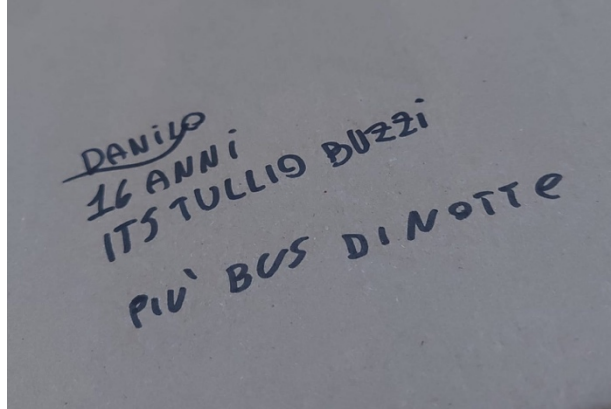 DANILO
16 ANNi
ITS TULLIO BUZZi
PIU' BUS DI NOTTe